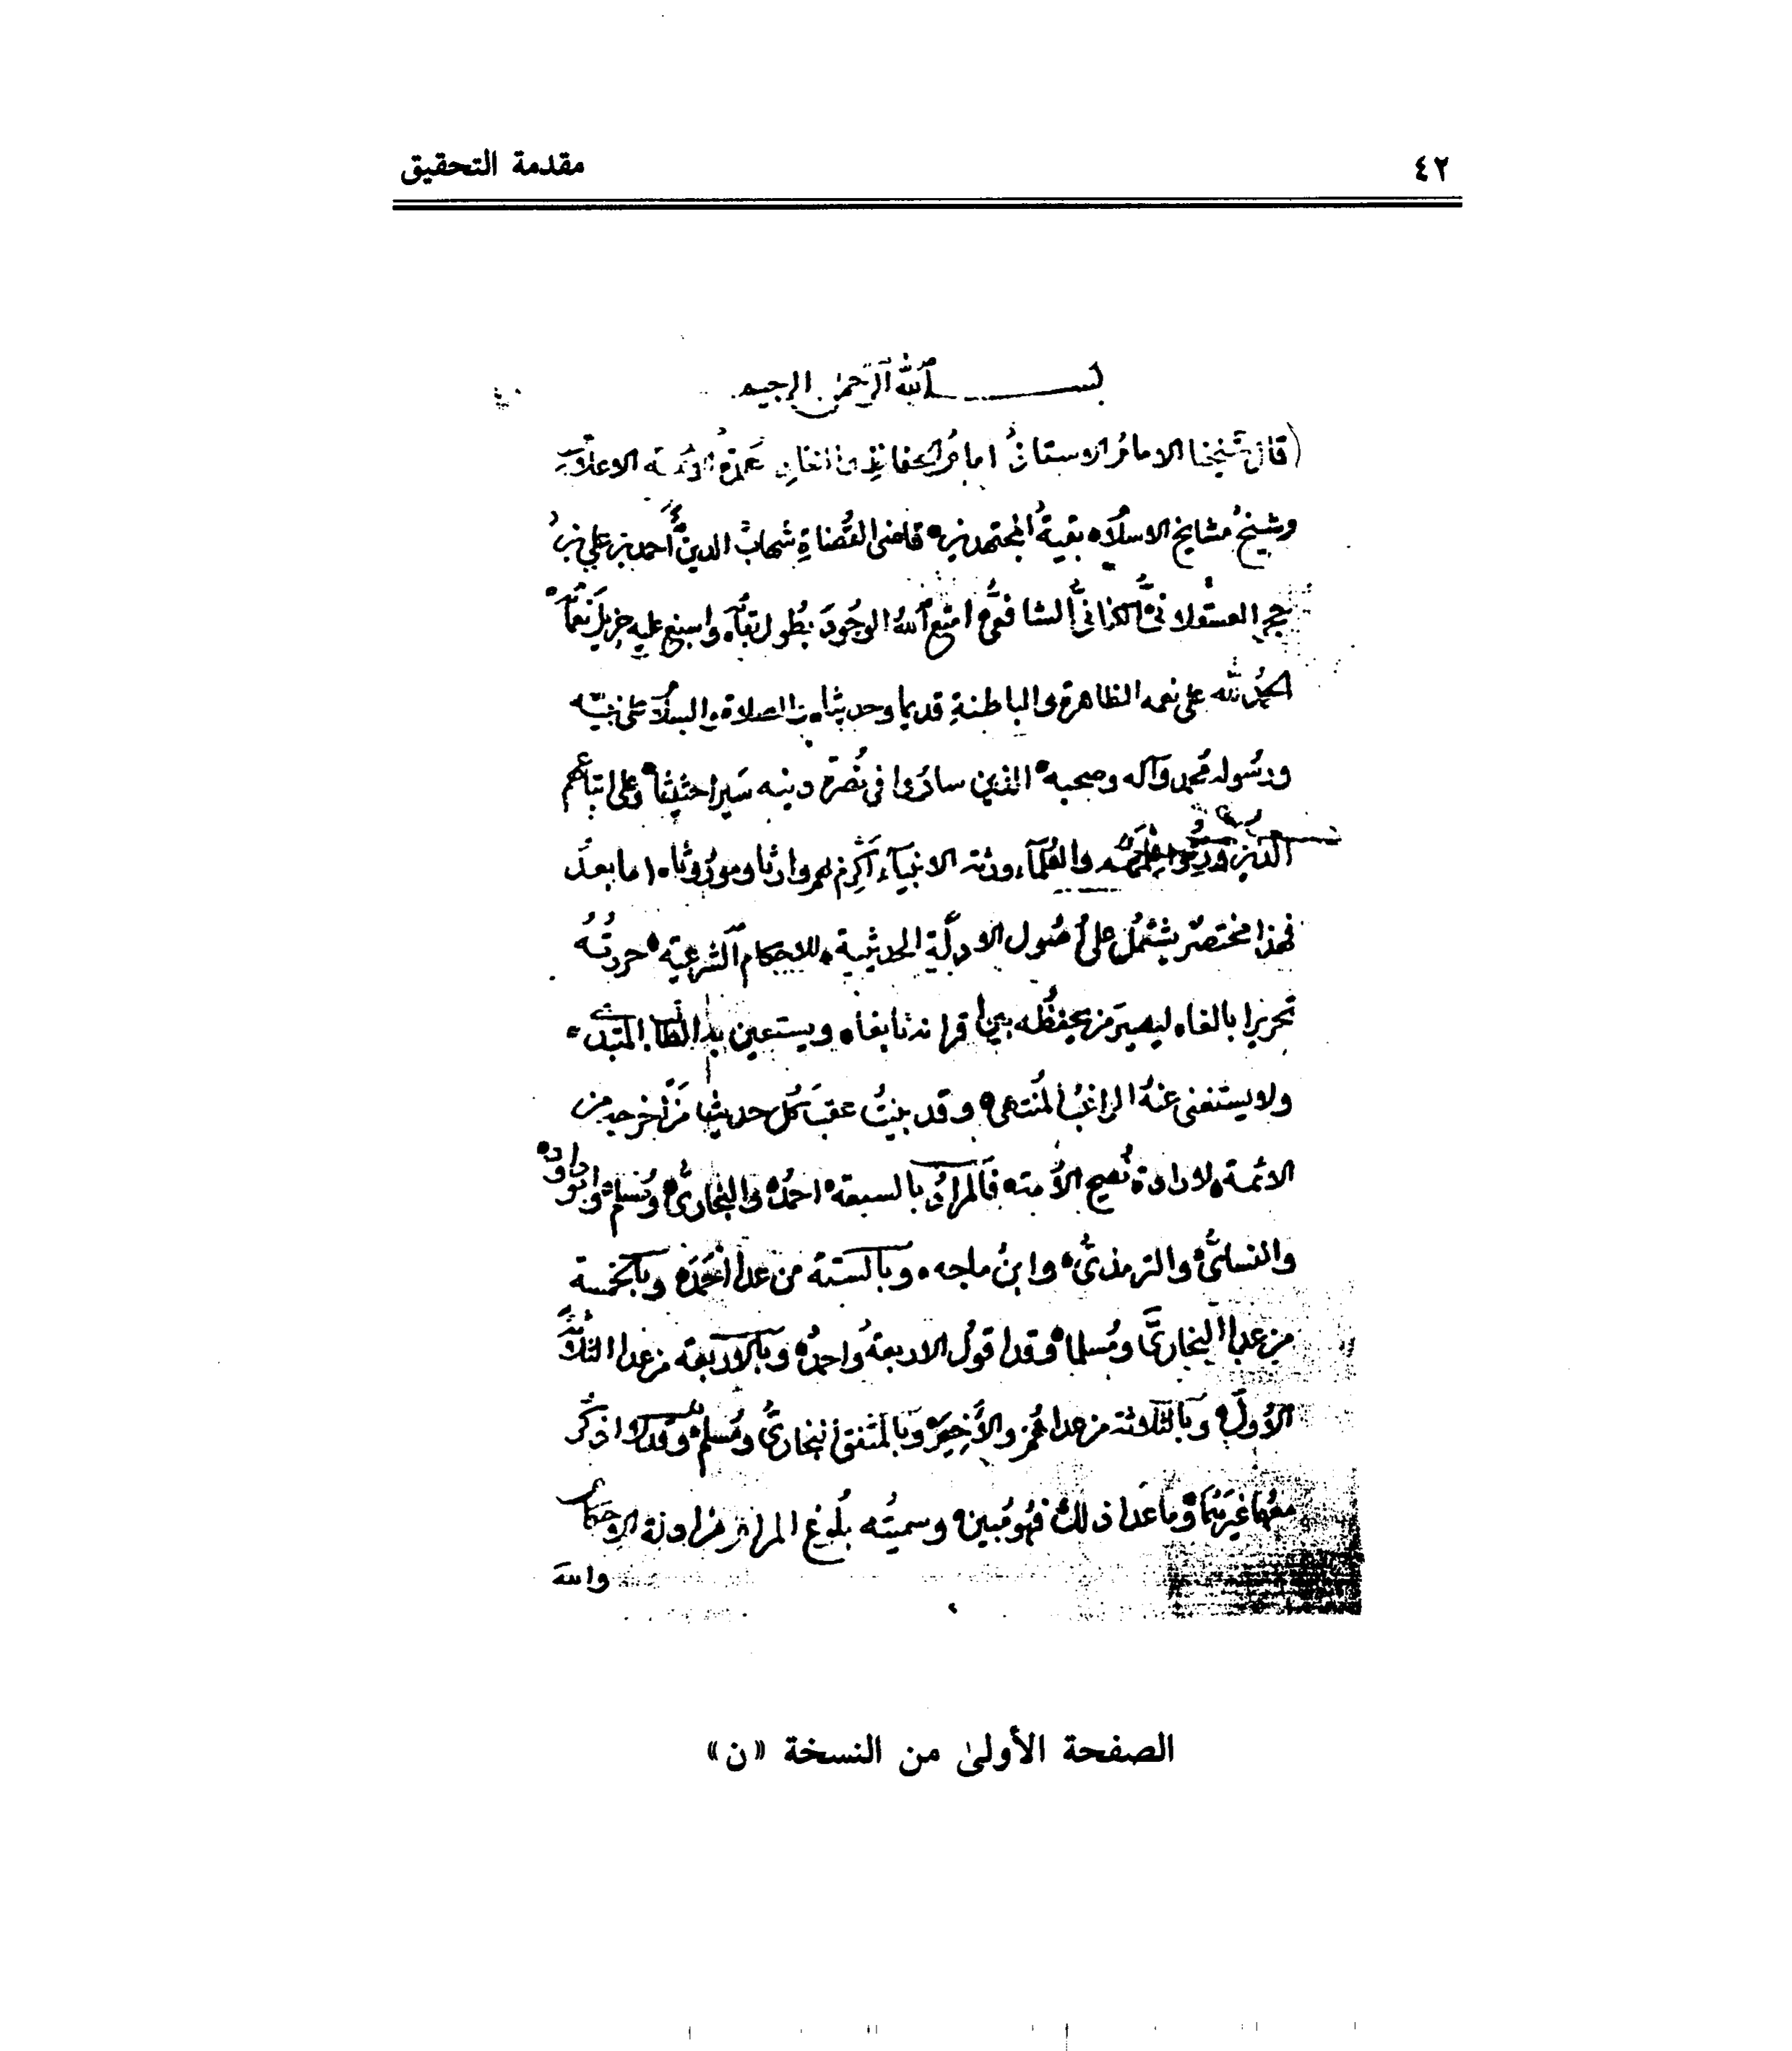 ٤٢
مقدمة التحقيق
بسم الله الرحمن الرحيم
(قال شيخنا الامام الاستاذ امام الحفاظ عمدة الاعلام
وشيخ مشايخ الاسلام بقية المجتهدين قاضى القضاة شهاب الدين احمد بن على بن
حجر العسقلانى الكنانى الشافعى امتع الله الوجود بطول بقائه واسبغ عليه جزيل نعمائه
الحمد لله على نعمه الظاهرة والباطنة قديما وحديثا والصلاة والسلام على نبيه
ورسوله محمد وآله وصحبه الذين ساروا فى نصرة دينه سيرا حثيثا وعلى اتباعهم
الذين ورثوا علمهم والعلماء ورثة الانبياء اكرم بهم وارثا وموروثا اما بعد
فهذا مختصر يشتمل على اصول الادلة الحديثية للاحكام الشرعية حررته
تحريرا بالغا ليصير من يحفظه بين اقرانه نابغا ويستعين به الطالب المبتدى
ولا يستغنى عنه الراغب المنتهى وقد بينت عقب كل حديث من اخرجه من
الائمة لارادة نصح الامة فالمراد بالسبعة احمد والبخارى ومسلم وابو داود
والنسائى والترمذى وابن ماجه وبالستة من عدا احمد وبالخمسة
من عدا البخارى ومسلما وقد اقول الاربعة واحمد وبالاربعة من عدا الثلاثة
الاول وبالثلاثة من عداهم والاخير وبالمتفق البخارى ومسلم وقد لا اذكر
معهما غيرهما وما عدا ذلك فهو مبين وسميته بلوغ المرام من ادلة الاحكام
والله
الصفحة الأولى من النسخة «ن»